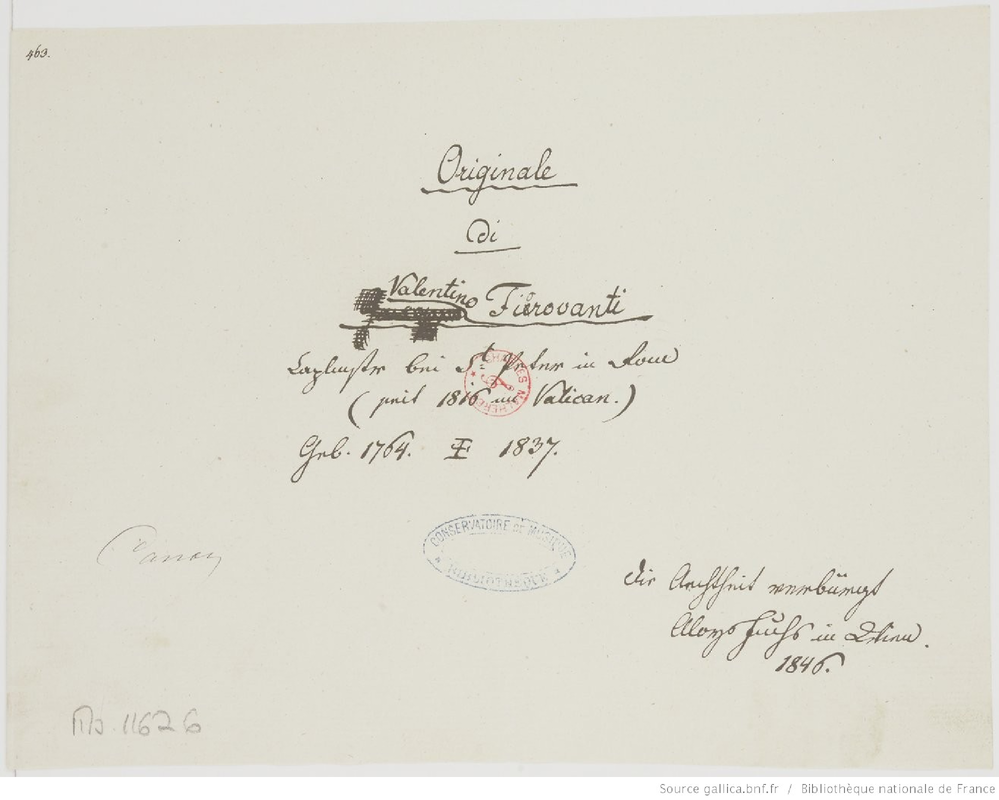 463.
Originale
di
Valentino Fiorovanti
Caplmstr bei St Peter in Rom
(seit 1816 im Vatican.)
Geb. 1764. 1837.
CHARLES MALHERBE
Canon
CONSERVATOIRE DE MUSIQUE
BIBLIOTHÈQUE
die Aechtheit verbürgt
Aloys Fuchs in Wien.
1846.
Ms. 11626
Source gallica.bnf.fr / Bibliothèque nationale de France